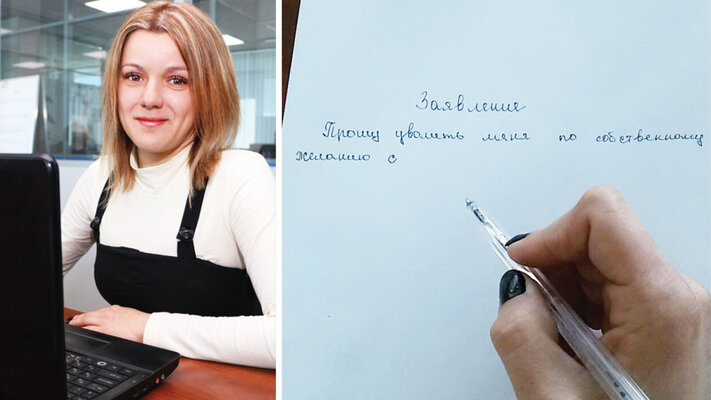 Заявление
Прошу уволить меня по собственному
желанию с